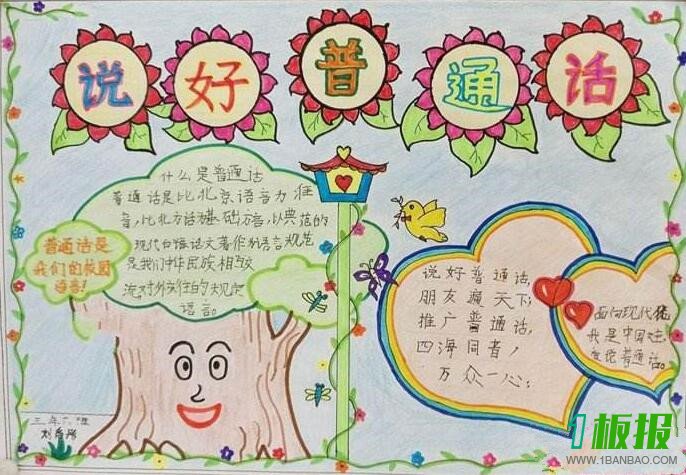 说好普通话
什么是普通话
普通话是比北京语音为准
音,比北方话为基础方言,以典范的
现代白话文著作为语言规范
是我们中华民族相互交
流对外交往的规定
语言。
普通话是
我们的校园
语言!
说好普通话,
朋友遍天下;
推广普通话,
四海同音,
万众一心;
面向现代化
我是中国娃,
爱说普通话。
三年
板报
WWW.1BANBAO.COM